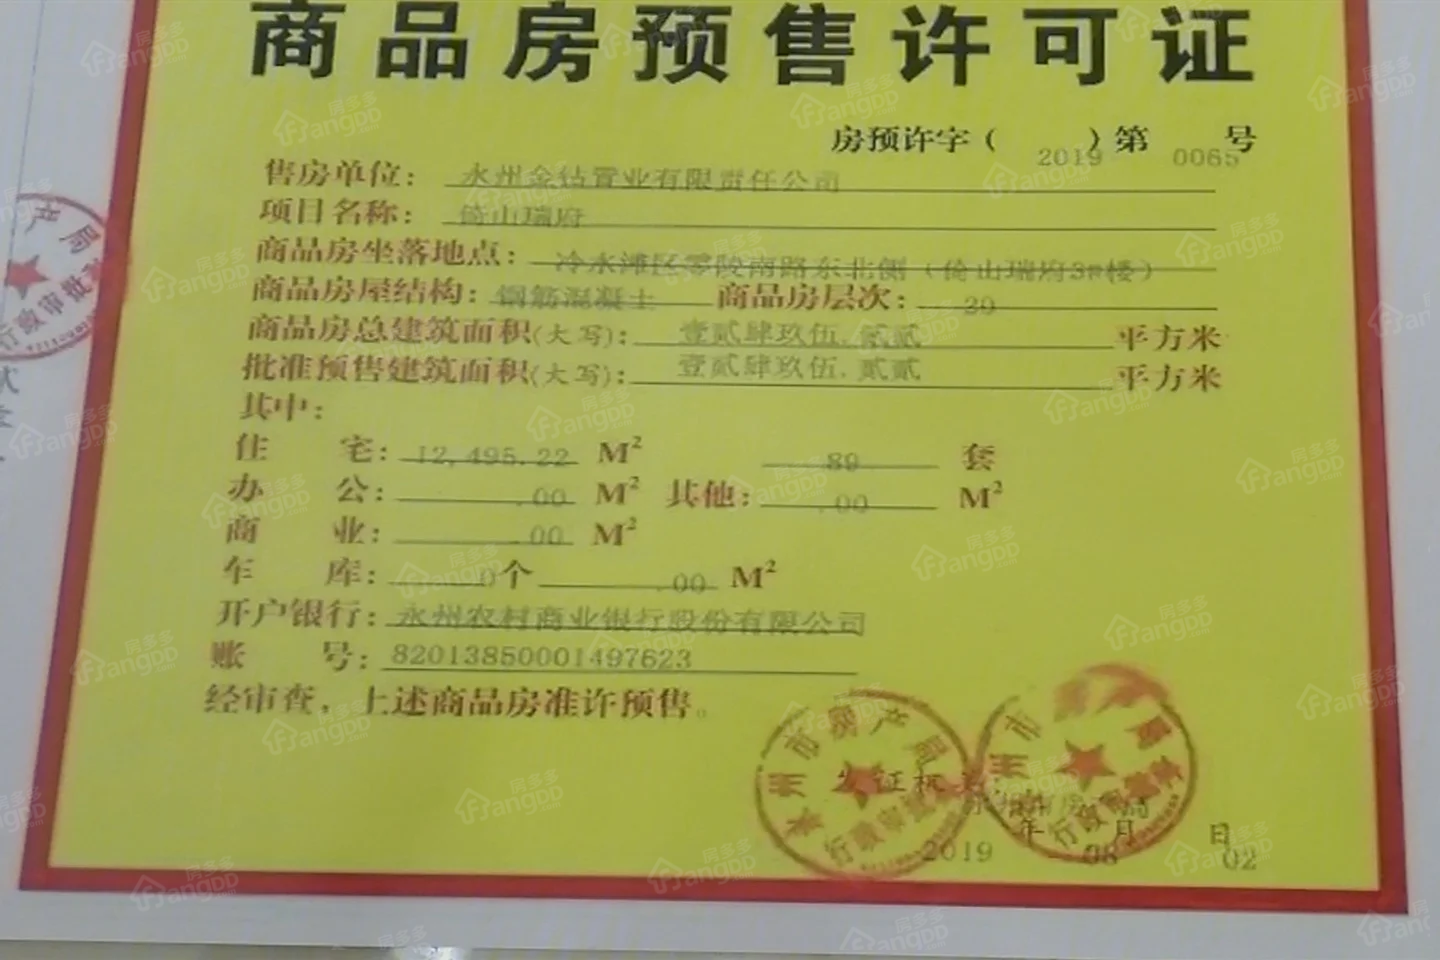 商品房预售许可证
房预许字（2019）第 0065 号
售房单位：永州金钻置业有限责任公司
项目名称：倚山瑞府
商品房坐落地点：冷水滩区零陵南路东北侧（倚山瑞府3#楼）
商品房屋结构：钢筋混凝土 商品房层次：30
商品房总建筑面积(大写)：壹贰肆玖伍.贰贰 平方米
批准预售建筑面积(大写)：壹贰肆玖伍.贰贰 平方米
其中：
住 宅：12,495.22 M² 89 套
办 公：.00 M² 其他：.00 M²
商 业：.00 M²
车 库：0个 .00 M²
开户银行：永州农村商业银行股份有限公司
账 号：82013850001497623
经审查，上述商品房准许预售。
发证机关：
永州市房产局
2019年08月02日
永州市房产局
行政审批
州市 局
行政审批
产局
行政审批
房多多
Fangdd